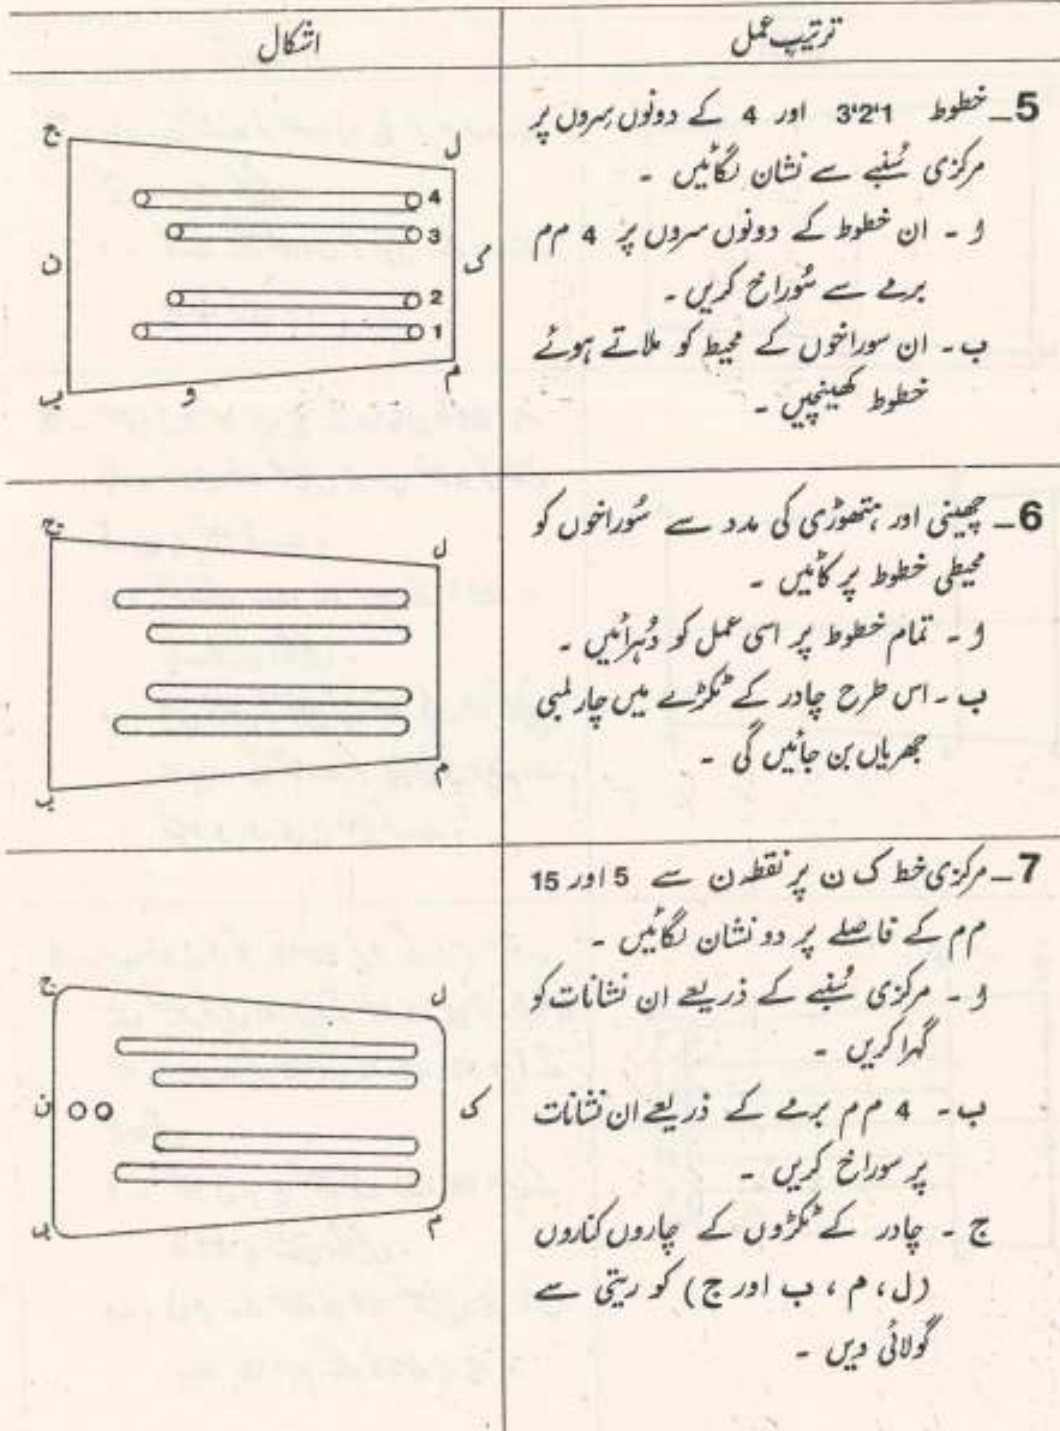 ترتیب عمل
اشکال
5_ خطوط 1'2'3 اور 4 کے دونوں سِروں پر
مرکزی سُنبے سے نشان لگائیں ۔
ا ۔ ان خطوط کے دونوں سروں پر 4 مم
برمے سے سُوراخ کریں ۔
ب ۔ ان سوراخوں کے محیط کو ملاتے ہوئے
خطوط کھینچیں ۔
ج
ل
4
3
ن
ک
2
1
م
ب
و
6_ چھینی اور ہتھوڑی کی مدد سے سُوراخوں کو
محیطی خطوط پر کاٹیں ۔
ا ۔ تمام خطوط پر اسی عمل کو دُہرائیں ۔
ب ۔ اس طرح چادر کے ٹکڑے میں چار لمبی
جھریاں بن جائیں گی ۔
ج
ل
م
ب
7_ مرکزی خط ک ن پر نقطہ ن سے 5 اور 15
مم کے فاصلے پر دو نشان لگائیں ۔
ا ۔ مرکزی سُنبے کے ذریعے ان نشانات کو
گہرا کریں ۔
ب ۔ 4 مم برمے کے ذریعے ان نشانات
پر سوراخ کریں ۔
ج ۔ چادر کے ٹکڑوں کے چاروں کناروں
(ل ، م ، ب اور ج) کو ریتی سے
گولائی دیں ۔
ج
ل
ن
ک
م
ب